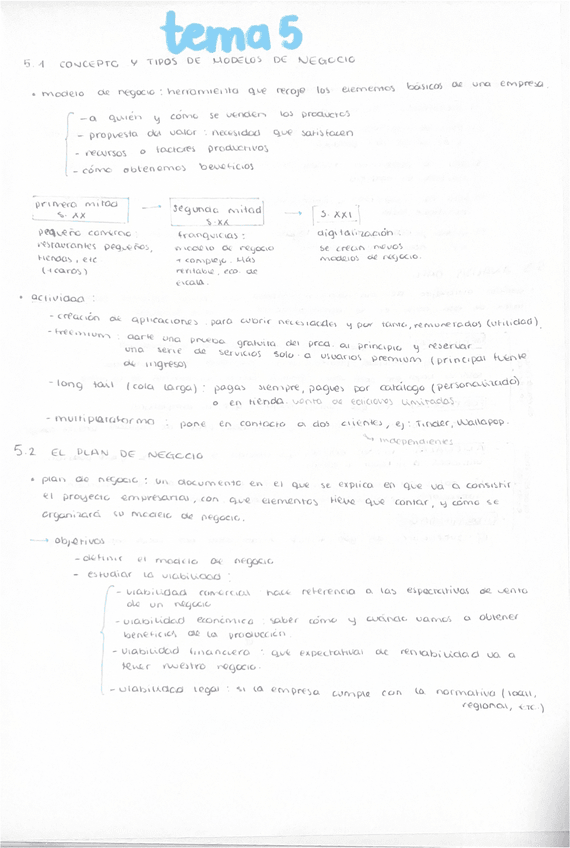 tema 5
5.1 CONCEPTO Y TIPOS DE MODELOS DE NEGOCIO
• modelo de negocio: herramienta que recoje los elementos básicos de una empresa.
- a quién y cómo se venden los productos
- propuesta del valor: necesidad que satisfacen
- recursos o factores productivos
- cómo obtenemos beneficios
primera mitad → segunda mitad → S. XXI
S. XX
S. XX
pequeño comercio:
restaurantes pequeños,
tiendas, etc
(+caros)
franquicias:
modelo de negocio
+ complejo. Más
rentable, eco. de
escala.
digitalización:
se crean nuevos
modelos de negocio.
• actividad:
- creación de aplicaciones para cubrir necesidades y por tanto, remunerados (utilidad).
- freemium: darte una prueba gratuita del prod. al principio y reservar
una serie de servicios solo a usuarios premium (principal fuente
de ingreso)
- long tail (cola larga): pagas siempre, pagues por catálogo (personalizado)
o en tienda. venta de ediciones limitadas.
- multiplataforma: pone en contacto a dos clientes, ej: Tinder, Wallapop.
↳ independientes
5.2 EL PLAN DE NEGOCIO
• plan de negocio: un documento en el que se explica en que va a consistir
el proyecto empresarial, con que elementos tiene que contar, y cómo se
organizará su modelo de negocio.
→ objetivos
- definir el modelo de negocio
- estudiar la viabilidad:
- viabilidad comercial hace referencia a las espectativas de venta
de un negocio
- viabilidad económica: saber cómo y cuándo vamos a obtener
beneficios de la producción.
- viabilidad financiera: que expectativas de rentabilidad va a
tener nuestro negocio.
- viabilidad legal: si la empresa cumple con la normativa (local,
regional, etc..)